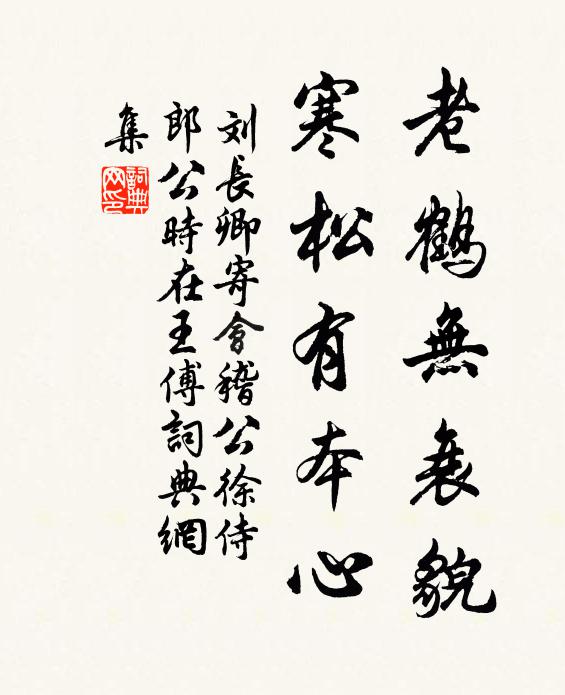 老鶴無衰貌
寒松有本心
刘長卿寄會稽公徐侍
郎公時在王傅詞典網
集
詞典
网印